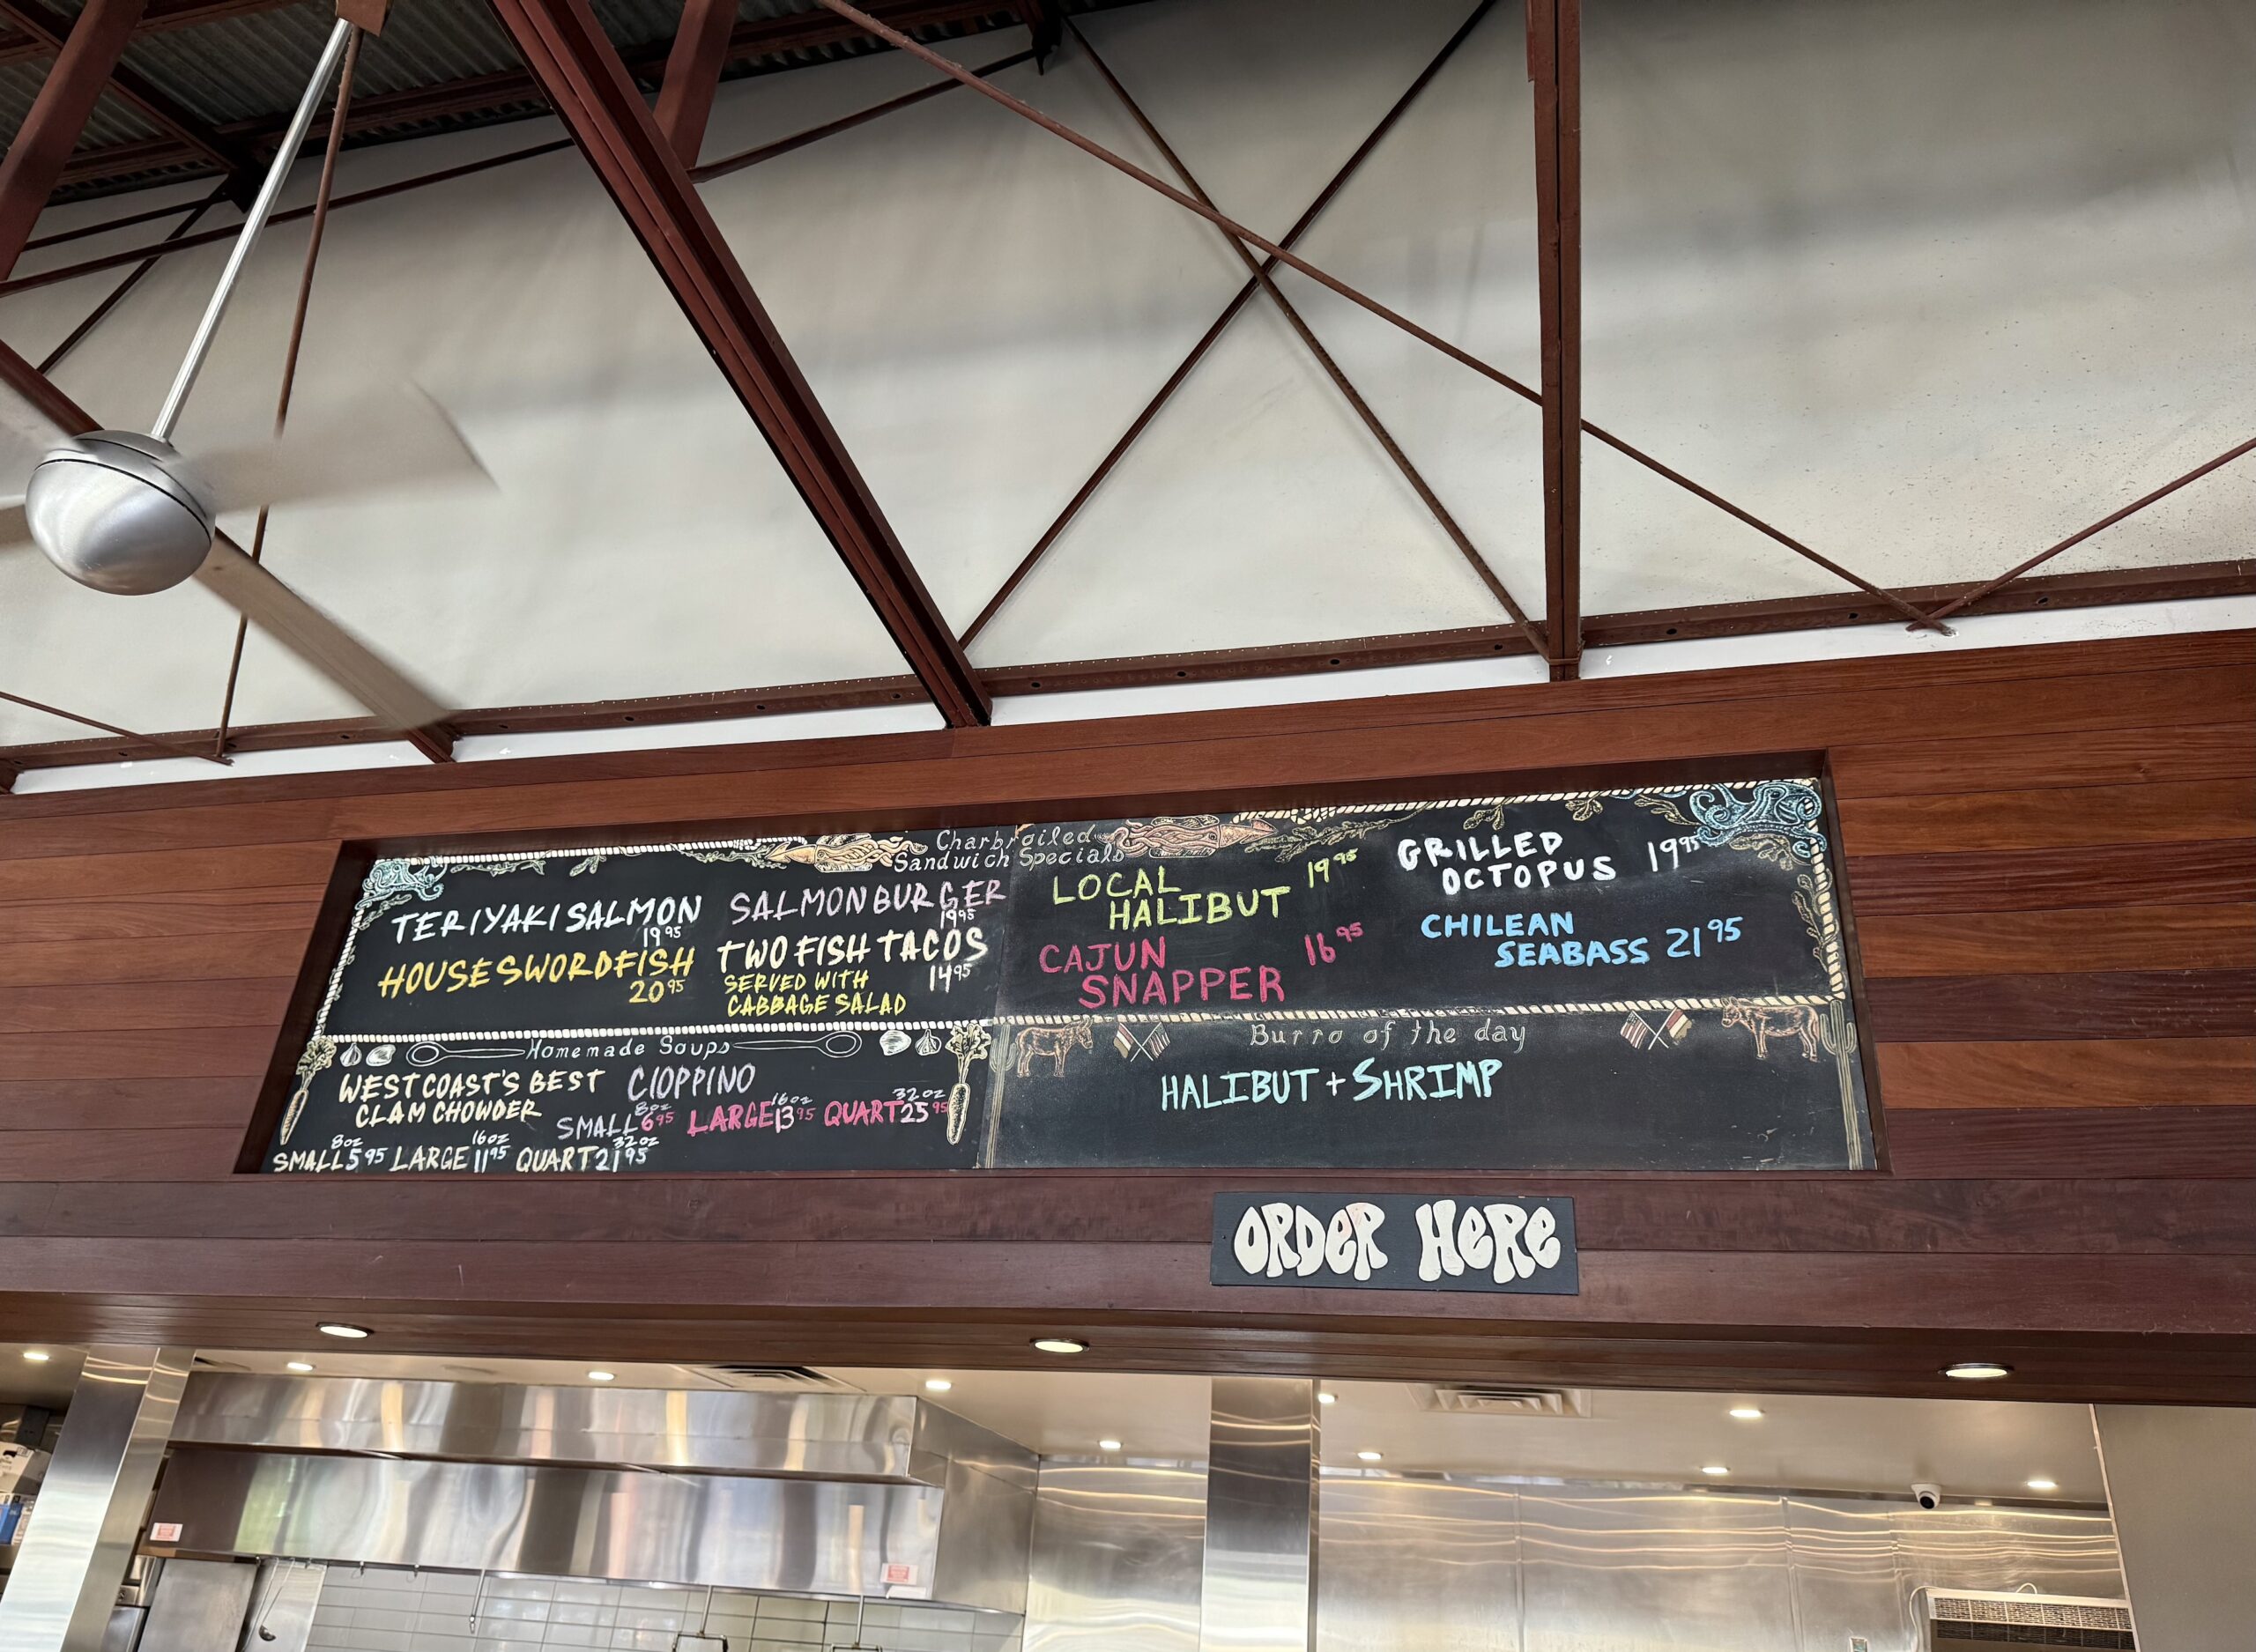 Charbroiled
Sandwich Specials
TERIYAKI SALMON
19 95
HOUSE SWORDFISH
20 95
SALMON BURGER
19 95
TWO FISH TACOS
14 95
SERVED WITH
CABBAGE SALAD
LOCAL
HALIBUT
19 95
CAJUN
SNAPPER
16 95
GRILLED
OCTOPUS
19 95
CHILEAN
SEABASS 21 95
Homemade Soups
WEST COAST'S BEST
CLAM CHOWDER
8oz 16oz 32oz
SMALL 5 95 LARGE 11 95 QUART 21 95
CIOPPINO
8oz 16oz 32oz
SMALL 6 95 LARGE 13 95 QUART 25 95
Burro of the day
HALIBUT + SHRIMP
ORDER HERE